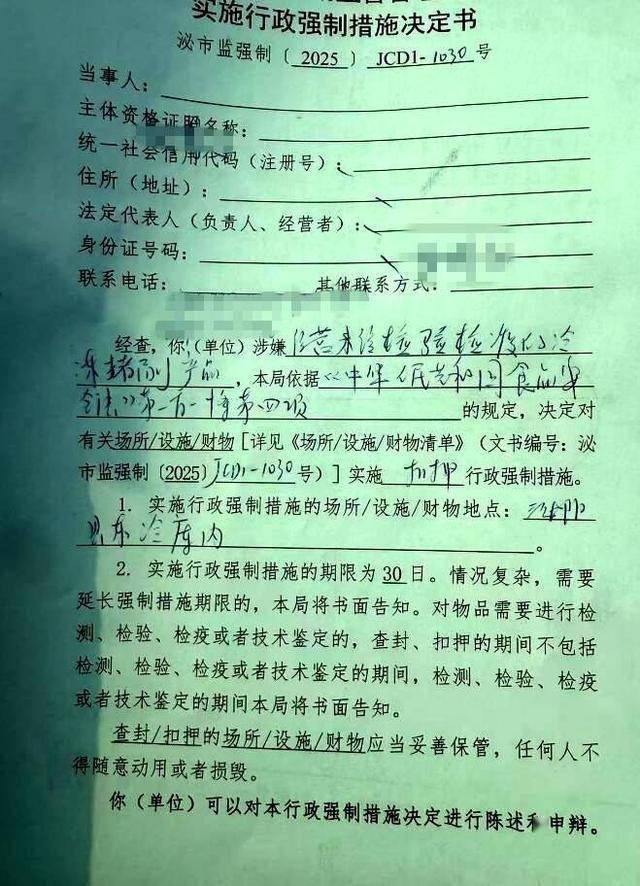 实施行政强制措施决定书
泌市监强制〔 2025 〕 JCD1-1030 号
当事人：
主体资格证照名称：
统一社会信用代码（注册号）：
住所（地址）：
法定代表人（负责人、经营者）：
身份证号码：
联系电话： 其他联系方式：
经查，你（单位）涉嫌 经营未经检验检疫的冷
冻猪副产品，本局依据《中华人民共和国食品安
全法》第一百一十条第四项 的规定，决定对
有关场所/设施/财物［详见《场所/设施/财物清单》（文书编号：泌
市监强制〔2025〕JCD1-1030号）］实施 扣押 行政强制措施。
1. 实施行政强制措施的场所/设施/财物地点：
冷库内。
2. 实施行政强制措施的期限为 30 日。情况复杂，需要
延长强制措施期限的，本局将书面告知。对物品需要进行检
测、检验、检疫或者技术鉴定的，查封、扣押的期间不包括
检测、检验、检疫或者技术鉴定的期间，检测、检验、检疫
或者技术鉴定的期间本局将书面告知。
查封/扣押的场所/设施/财物应当妥善保管，任何人不
得随意动用或者损毁。
你（单位）可以对本行政强制措施决定进行陈述和申辩。